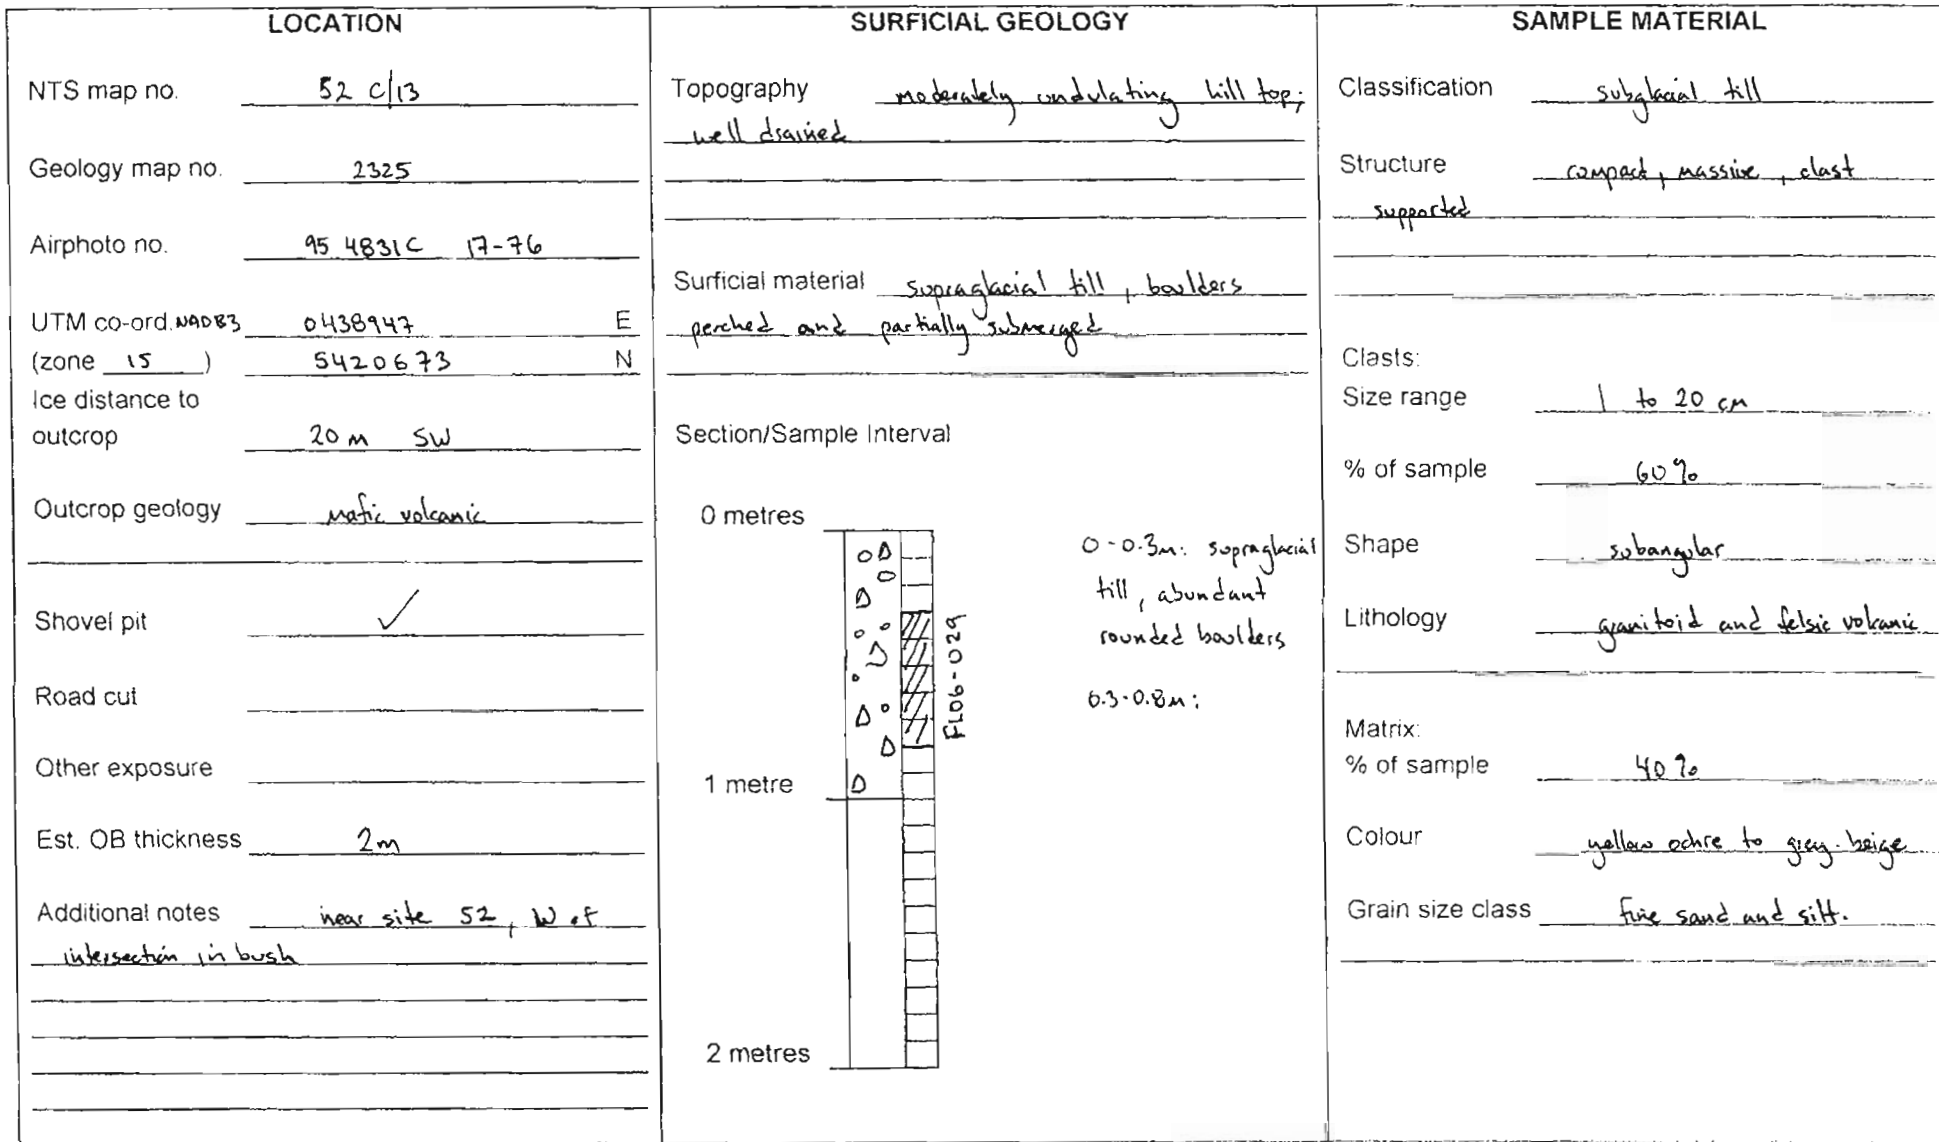 LOCATION
NTS map no. 52 C/13
Geology map no. 2325
Airphoto no. 95 4831C 17-76
UTM co-ord. NAD83 0438947 E
(zone 15 ) 5420673 N
Ice distance to
outcrop 20 m SW
Outcrop geology mafic volcanic
Shovel pit ✓
Road cut
Other exposure
Est. OB thickness 2m
Additional notes near site 52, W of
intersection in bush
SURFICIAL GEOLOGY
Topography moderately undulating hill top;
well drained
Surficial material supraglacial till, boulders
perched and partially submerged
Section/Sample Interval
0 metres
1 metre
2 metres
FL06-029
0-0.3m: supraglacial
till, abundant
rounded boulders
0.3-0.8m:
SAMPLE MATERIAL
Classification subglacial till
Structure compact, massive, clast
supported
Clasts:
Size range 1 to 20 cm
% of sample 60%
Shape subangular
Lithology granitoid and felsic volcanic
Matrix:
% of sample 40%
Colour yellow ochre to grey-beige
Grain size class fine sand and silt.